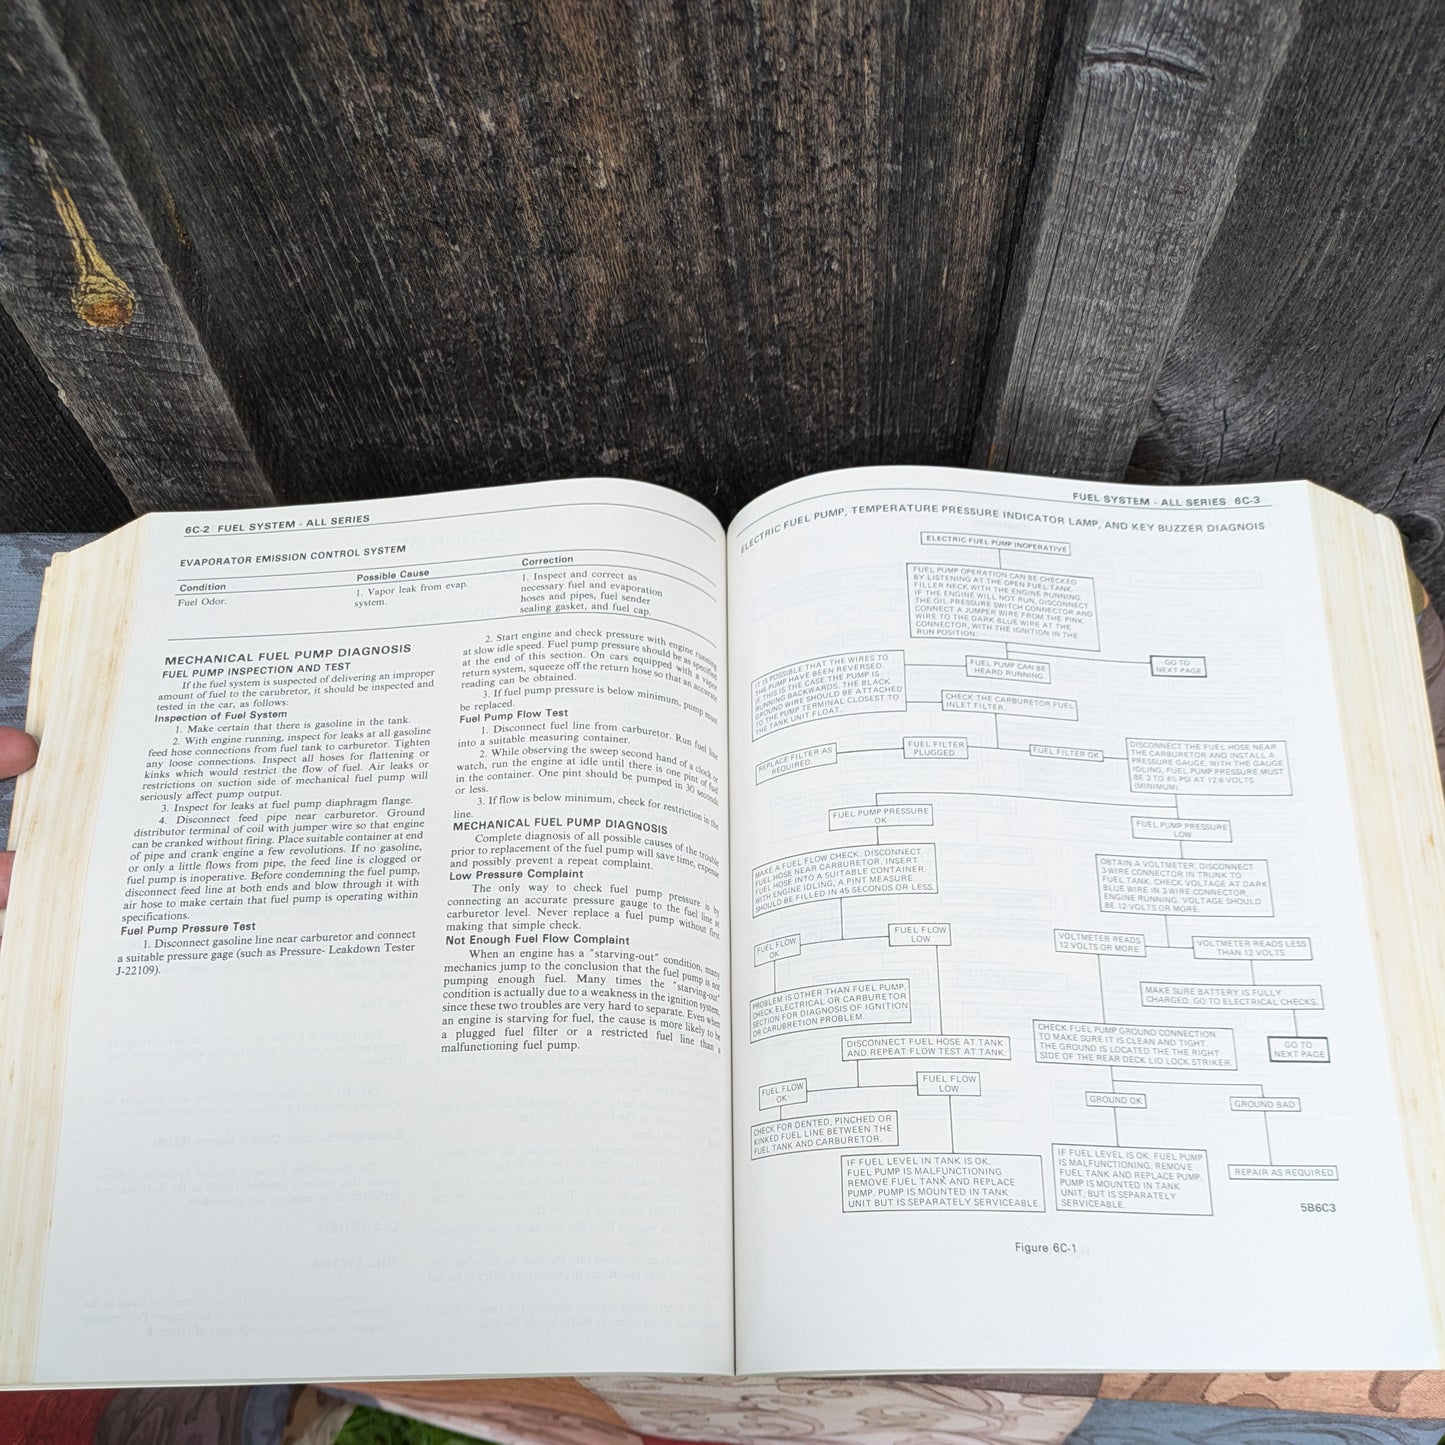 6C-2 FUEL SYSTEM - ALL SERIES
EVAPORATOR EMISSION CONTROL SYSTEM
Condition
Possible Cause
Correction
Fuel Odor.
1. Vapor leak from evap.
system.
1. Inspect and correct as
necessary fuel and evaporation
hoses and pipes, fuel sender
sealing gasket, and fuel cap.
MECHANICAL FUEL PUMP DIAGNOSIS
FUEL PUMP INSPECTION AND TEST
If the fuel system is suspected of delivering an improper
amount of fuel to the carubretor, it should be inspected and
tested in the car, as follows:
Inspection of Fuel System
1. Make certain that there is gasoline in the tank.
2. With engine running, inspect for leaks at all gasoline
feed hose connections from fuel tank to carburetor. Tighten
any loose connections. Inspect all hoses for flattening or
kinks which would restrict the flow of fuel. Air leaks or
restrictions on suction side of mechanical fuel pump will
seriously affect pump output.
3. Inspect for leaks at fuel pump diaphragm flange.
4. Disconnect feed pipe near carburetor. Ground
distributor terminal of coil with jumper wire so that engine
can be cranked without firing. Place suitable container at end
of pipe and crank engine a few revolutions. If no gasoline,
or only a little flows from pipe, the feed line is clogged or
fuel pump is inoperative. Before condemning the fuel pump,
disconnect feed line at both ends and blow through it with
air hose to make certain that fuel pump is operating within
specifications.
Fuel Pump Pressure Test
1. Disconnect gasoline line near carburetor and connect
a suitable pressure gage (such as Pressure- Leakdown Tester
J-22109).
2. Start engine and check pressure with engine running
at slow idle speed. Fuel pump pressure should be as specified
at the end of this section. On cars equipped with a vapor
return system, squeeze off the return hose so that an accurate
reading can be obtained.
3. If fuel pump pressure is below minimum, pump must
be replaced.
Fuel Pump Flow Test
1. Disconnect fuel line from carburetor. Run fuel line
into a suitable measuring container.
2. While observing the sweep second hand of a clock or
watch, run the engine at idle until there is one pint of fuel
in the container. One pint should be pumped in 30 seconds
or less.
3. If flow is below minimum, check for restriction in the
line.
MECHANICAL FUEL PUMP DIAGNOSIS
Complete diagnosis of all possible causes of the trouble
prior to replacement of the fuel pump will save time, expense
and possibly prevent a repeat complaint.
Low Pressure Complaint
The only way to check fuel pump pressure is by
connecting an accurate pressure gauge to the fuel line at
carburetor level. Never replace a fuel pump without first
making that simple check.
Not Enough Fuel Flow Complaint
When an engine has a "starving-out" condition, many
mechanics jump to the conclusion that the fuel pump is not
pumping enough fuel. Many times the "starving-out"
condition is actually due to a weakness in the ignition system,
since these two troubles are very hard to separate. Even when
an engine is starving for fuel, the cause is more likely to be
a plugged fuel filter or a restricted fuel line than a
malfunctioning fuel pump.
FUEL SYSTEM - ALL SERIES 6C-3
ELECTRIC FUEL PUMP, TEMPERATURE PRESSURE INDICATOR LAMP, AND KEY BUZZER DIAGNOIS
ELECTRIC FUEL PUMP INOPERATIVE
FUEL PUMP OPERATION CAN BE CHECKED
BY LISTENING AT THE OPEN FUEL TANK
FILLER NECK WITH THE ENGINE RUNNING.
IF THE ENGINE WILL NOT RUN, DISCONNECT
THE OIL PRESSURE SWITCH CONNECTOR AND
CONNECT A JUMPER WIRE FROM THE PINK
WIRE TO THE DARK BLUE WIRE AT THE
CONNECTOR, WITH THE IGNITION IN THE
RUN POSITION.
IT IS POSSIBLE THAT THE WIRES TO
THE PUMP HAVE BEEN REVERSED.
IF THIS IS THE CASE THE PUMP IS
RUNNING BACKWARDS. THE BLACK
GROUND WIRE SHOULD BE ATTACHED
TO THE PUMP TERMINAL CLOSEST TO
THE TANK UNIT FLOAT.
FUEL PUMP CAN BE
HEARD RUNNING
GO TO
NEXT PAGE
CHECK THE CARBURETOR FUEL
INLET FILTER.
REPLACE FILTER AS
REQUIRED.
FUEL FILTER
PLUGGED
FUEL FILTER OK
DISCONNECT THE FUEL HOSE NEAR
THE CARBURETOR AND INSTALL A
PRESSURE GAUGE. WITH THE GAUGE
IDLING, FUEL PUMP PRESSURE MUST
BE 3 TO 4½ PSI AT 12.6 VOLTS
(MINIMUM).
FUEL PUMP PRESSURE
OK
FUEL PUMP PRESSURE
LOW
MAKE A FUEL FLOW CHECK. DISCONNECT
FUEL HOSE NEAR CARBURETOR. INSERT
FUEL HOSE INTO A SUITABLE CONTAINER.
WITH ENGINE IDLING, A PINT MEASURE
SHOULD BE FILLED IN 45 SECONDS OR LESS.
OBTAIN A VOLTMETER. DISCONNECT
3-WIRE CONNECTOR IN TRUNK TO
FUEL TANK. CHECK VOLTAGE AT DARK
BLUE WIRE IN 3-WIRE CONNECTOR,
ENGINE RUNNING. VOLTAGE SHOULD
BE 12 VOLTS OR MORE.
FUEL FLOW
OK
FUEL FLOW
LOW
VOLTMETER READS
12 VOLTS OR MORE
VOLTMETER READS LESS
THAN 12 VOLTS
PROBLEM IS OTHER THAN FUEL PUMP.
CHECK ELECTRICAL OR CARBURETOR
SECTION FOR DIAGNOSIS OF IGNITION
OR CARUBRETION PROBLEM.
MAKE SURE BATTERY IS FULLY
CHARGED, GO TO ELECTRICAL CHECKS.
DISCONNECT FUEL HOSE AT TANK
AND REPEAT FLOW TEST AT TANK.
CHECK FUEL PUMP GROUND CONNECTION
TO MAKE SURE IT IS CLEAN AND TIGHT.
THE GROUND IS LOCATED THE THE RIGHT
SIDE OF THE REAR DECK LID LOCK STRIKER.
GO TO
NEXT PAGE
FUEL FLOW
OK
FUEL FLOW
LOW
GROUND OK
GROUND BAD
CHECK FOR DENTED, PINCHED OR
KINKED FUEL LINE BETWEEN THE
FUEL TANK AND CARBURETOR.
IF FUEL LEVEL IN TANK IS OK.
FUEL PUMP IS MALFUNCTIONING
REMOVE FUEL TANK AND REPLACE
PUMP. PUMP IS MOUNTED IN TANK
UNIT BUT IS SEPARATELY SERVICEABLE.
IF FUEL LEVEL IS OK. FUEL PUMP
IS MALFUNCTIONING. REMOVE
FUEL TANK AND REPLACE PUMP.
PUMP IS MOUNTED IN TANK
UNIT, BUT IS SEPARATELY
SERVICEABLE.
REPAIR AS REQUIRED
5B6C3
Figure 6C-1